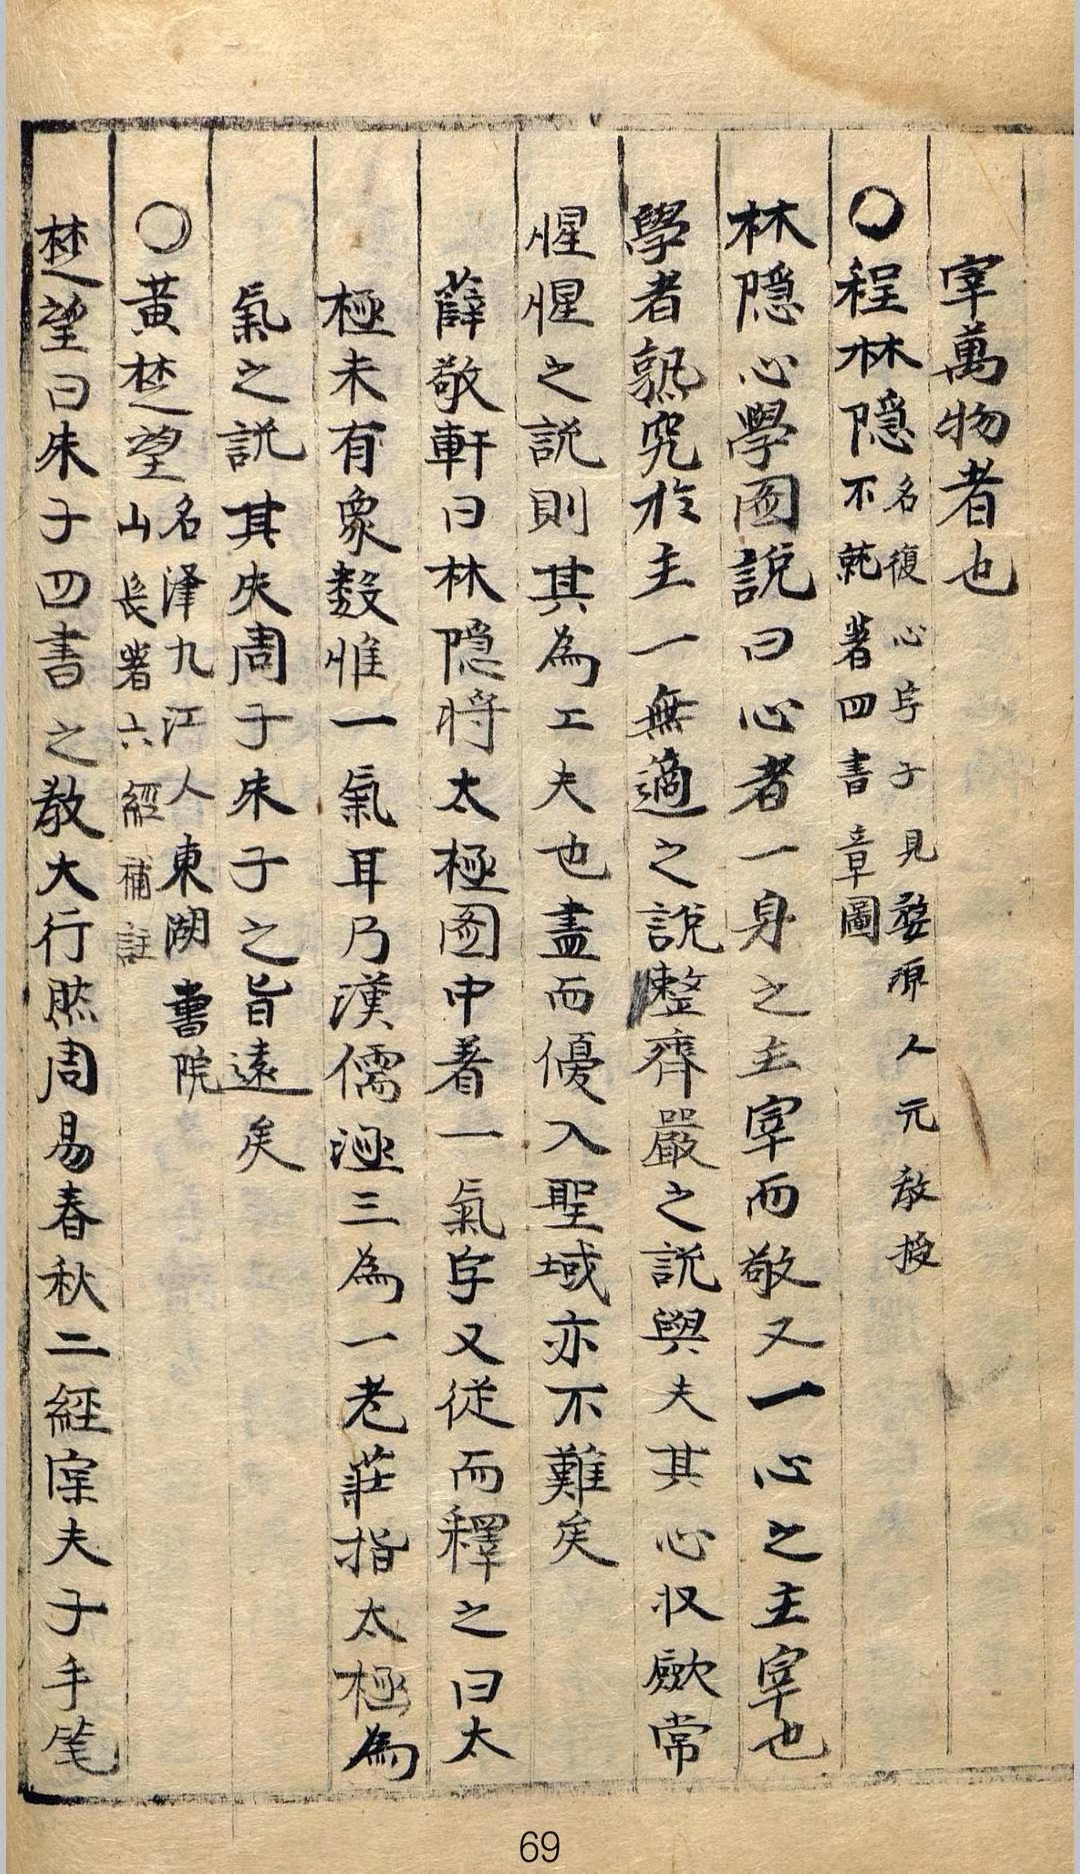 宰萬物者也
○程林隠名復心字子見婺源人元敎授
不就著四書章圖
林隠心學圖說曰心者一身之主宰而敬又一心之主宰也
學者熟究於主一無適之說整齊嚴之説與夫其心収歛常
惺惺之説則其為工夫也盡而優入聖域亦不難矣
薛敬軒曰林隠将太極图中着一氣字又從而釋之曰太
極未有象數惟一氣耳乃漢儒涵三為一老莊指太極為
氣之説其失周子朱子之旨遠矣
○黃楚望名澤九江人東湖書院
山長著六經補註
楚望曰朱子四書之敎大行然周易春秋二經寀夫子手笔
69